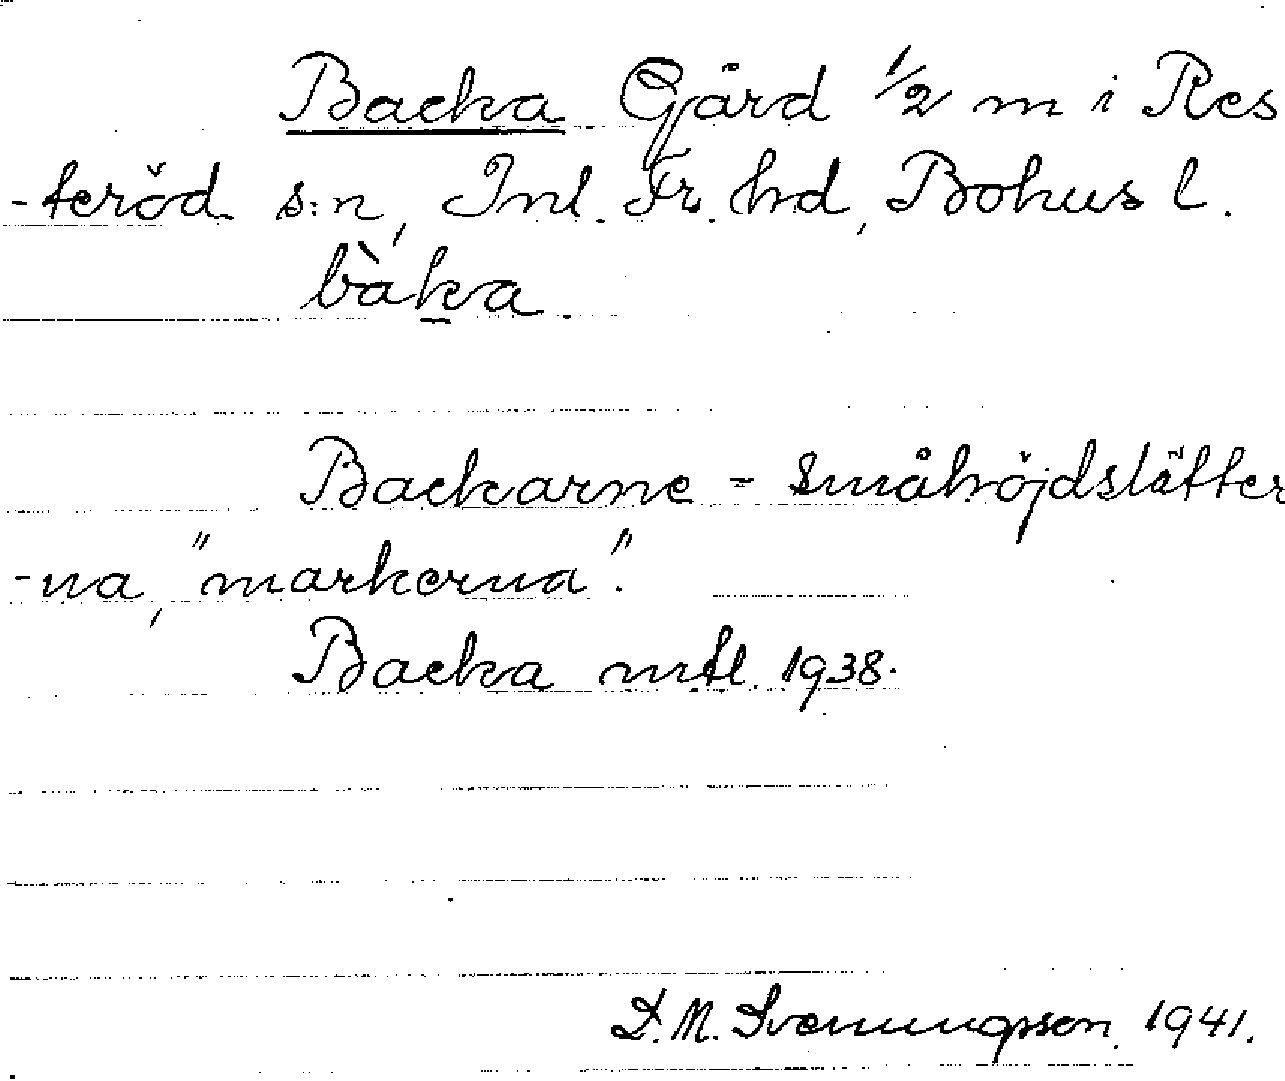 Backa Gård 1/2 m i Res
-teröd s:n, Inl. Fr. hd, Bohus l.
bàka.
Backarne - småhöjdslätter
-na, "markerna".
Backa mtl. 1938.
D.M. Svenungsson. 1941.